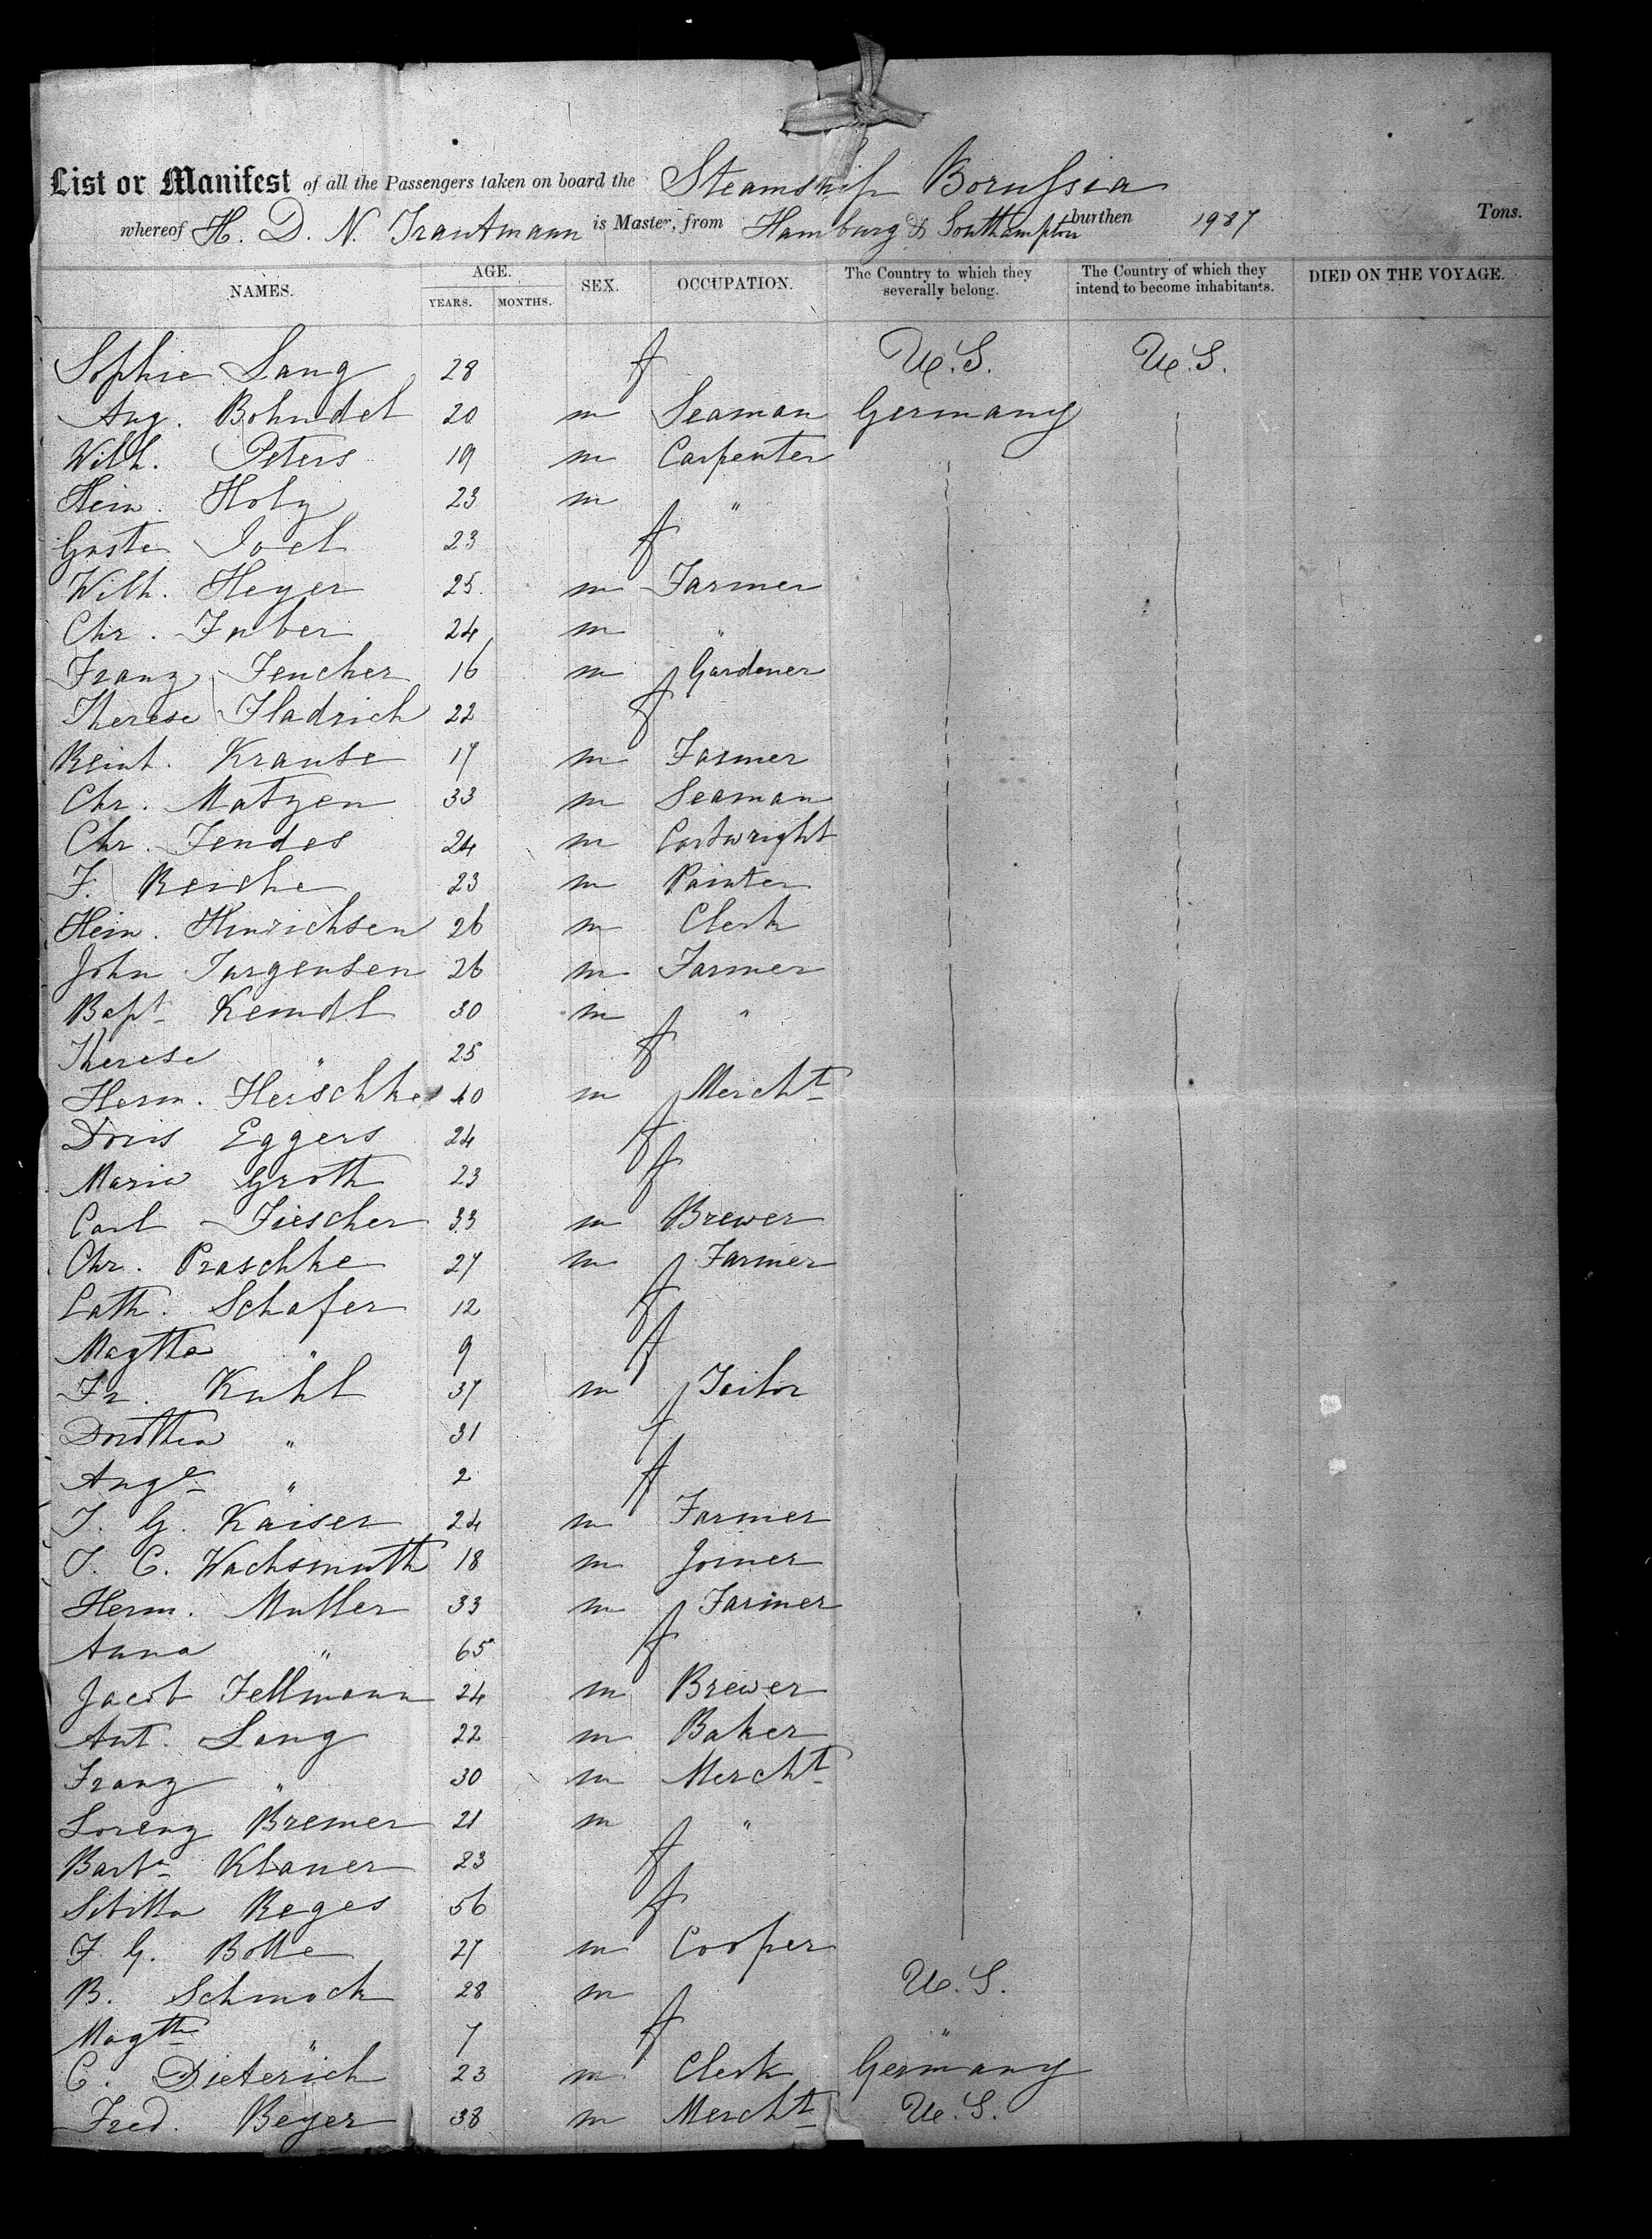 List or Manifest of all the Passengers taken on board the Steamship Borussia
whereof H. D. N. Trautmann is Master, from Hamburg & Southampton burthen 1987 Tons.
NAMES. AGE. YEARS. MONTHS. SEX. OCCUPATION. The Country to which they severally belong. The Country of which they intend to become inhabitants. DIED ON THE VOYAGE.
Sophie Lang 28 f U.S. U.S.
Aug. Bohndel 20 m Seaman Germany
Wilh. Peters 19 m Carpenter
Hein. Holz 23 m "
Guste Joel 23 f
Wilh. Heyer 25 m Farmer
Chr. Faber 24 m "
Franz Fencher 16 m Gardener
Therese Fladrich 22 f
Reint. Krause 17 m Farmer
Chr. Matzen 33 m Seaman
Chr. Jendes 24 m Cartwright
F. Reiche 23 m Painter
Hein. Hinrichsen 26 m Clerk
John Jurgensen 26 m Farmer
Bapt. Kemdl 30 m "
Therese " 25 f
Herm. Herschke 40 m Mercht
Doris Eggers 24 f
Maria Groth 23 f
Carl Fiescher 33 m Brewer
Chr. Praschke 27 m Farmer
Cath. Schafer 12 f
Magtha " 9 f
Fr. Kuhl 37 m Tailor
Dorothea " 31 f
Auge " 2 f
J. G. Kaiser 24 m Farmer
J. C. Wachsmuth 18 m Joiner
Herm. Muller 33 m Farmer
Anna " 65 f
Jacob Fellmann 24 m Brewer
Ant. Lang 22 m Baker
Franz " 30 m Mercht
Lorenz Bremer 21 m "
Barba Klauer 23 f
Sibilla Reges 56 f
F. G. Bolle 27 m Cooper
B. Schmock 28 m U.S.
Magth " 7 f "
C. Dieterich 23 m Clerk Germany
Fred. Beyer 38 m Mercht U.S.